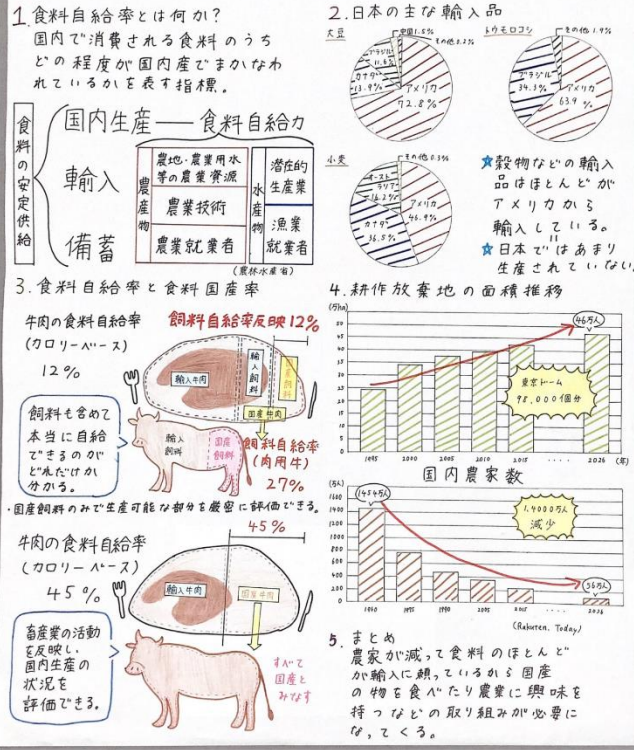 1.食料自給率とは何か?
国内で消費される食料のうち
どの程度が国内産でまかなわ
れているかを表す指標。
食料の安定供給
国内生産 ── 食料自給力
輸入
備蓄
農産物
農地・農業用水
等の農業資源
農業技術
農業就業者
水産物
潜在的
生産業
漁業
就業者
(農林水産省)
2.日本の主な輸入品
大豆
中国1.5%
その他2.2%
ブラジル
11.6%
カナダ
13.9%
アメリカ
72.8%
トウモロコシ
その他1.9%
ブラジル
34.3%
アメリカ
63.9%
小麦
その他0.3%
オースト
ラリア
16.2%
アメリカ
46.9%
カナダ
36.5%
穀物などの輸入
品はほとんどが
アメリカから
輸入している。
=
日本ではあまり
生産されていない。
3.食料自給率と食料国産率
牛肉の食料自給率
(カロリーベース)
12%
飼料自給率反映12%
輸入牛肉
輸入飼料
国産飼料
国産牛肉
飼料も含めて
本当に自給
できるのが
どれだけか
分かる。
輸入
飼料
国産
飼料
飼料自給率
(肉用牛)
27%
・国産飼料のみで生産可能な部分を厳密に評価できる。
45%
牛肉の食料自給率
(カロリーベース)
45%
輸入牛肉
国産牛肉
畜産業の活動
を反映し、
国内生産の
状況を
評価できる。
すべて
国産と
みなす
4.耕作放棄地の面積推移
(万ha)
50
45
40
35
30
25
20
15
10
5
0
46万人
東京ドーム
98,000個分
1995
2000
2005
2010
2015
.....
2026
(年)
国内農家数
(万人)
1454万人
1600
1400
1200
1000
800
600
400
200
0
1,4000万人
減少
96万人
1960
1975
1990
2015
....
2026
(Rakuten.Today)
5. まとめ
農家が減って食料のほとんど
が輸入に頼っているから国産
の物を食べたり農業に興味を
持つなどの取り組みが必要に
なってくる。